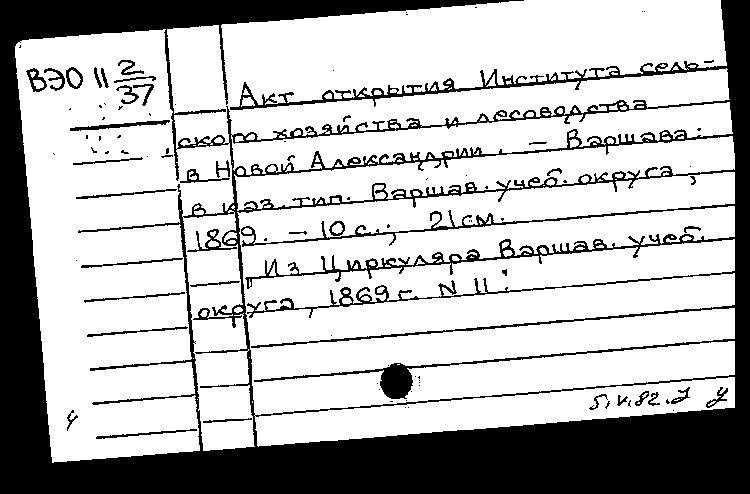 ВЭО II 2/37
Акт открытия Института сель-
ского хозяйства и лесоводства
в Новой Александрии. – Варшава:
в каз. тип. Варшав. учеб. округа,
1869. – 10 с.; 21 см.
"Из Циркуляра Варшав. учеб.
округа, 1869 г. N 11"
5.V.82.